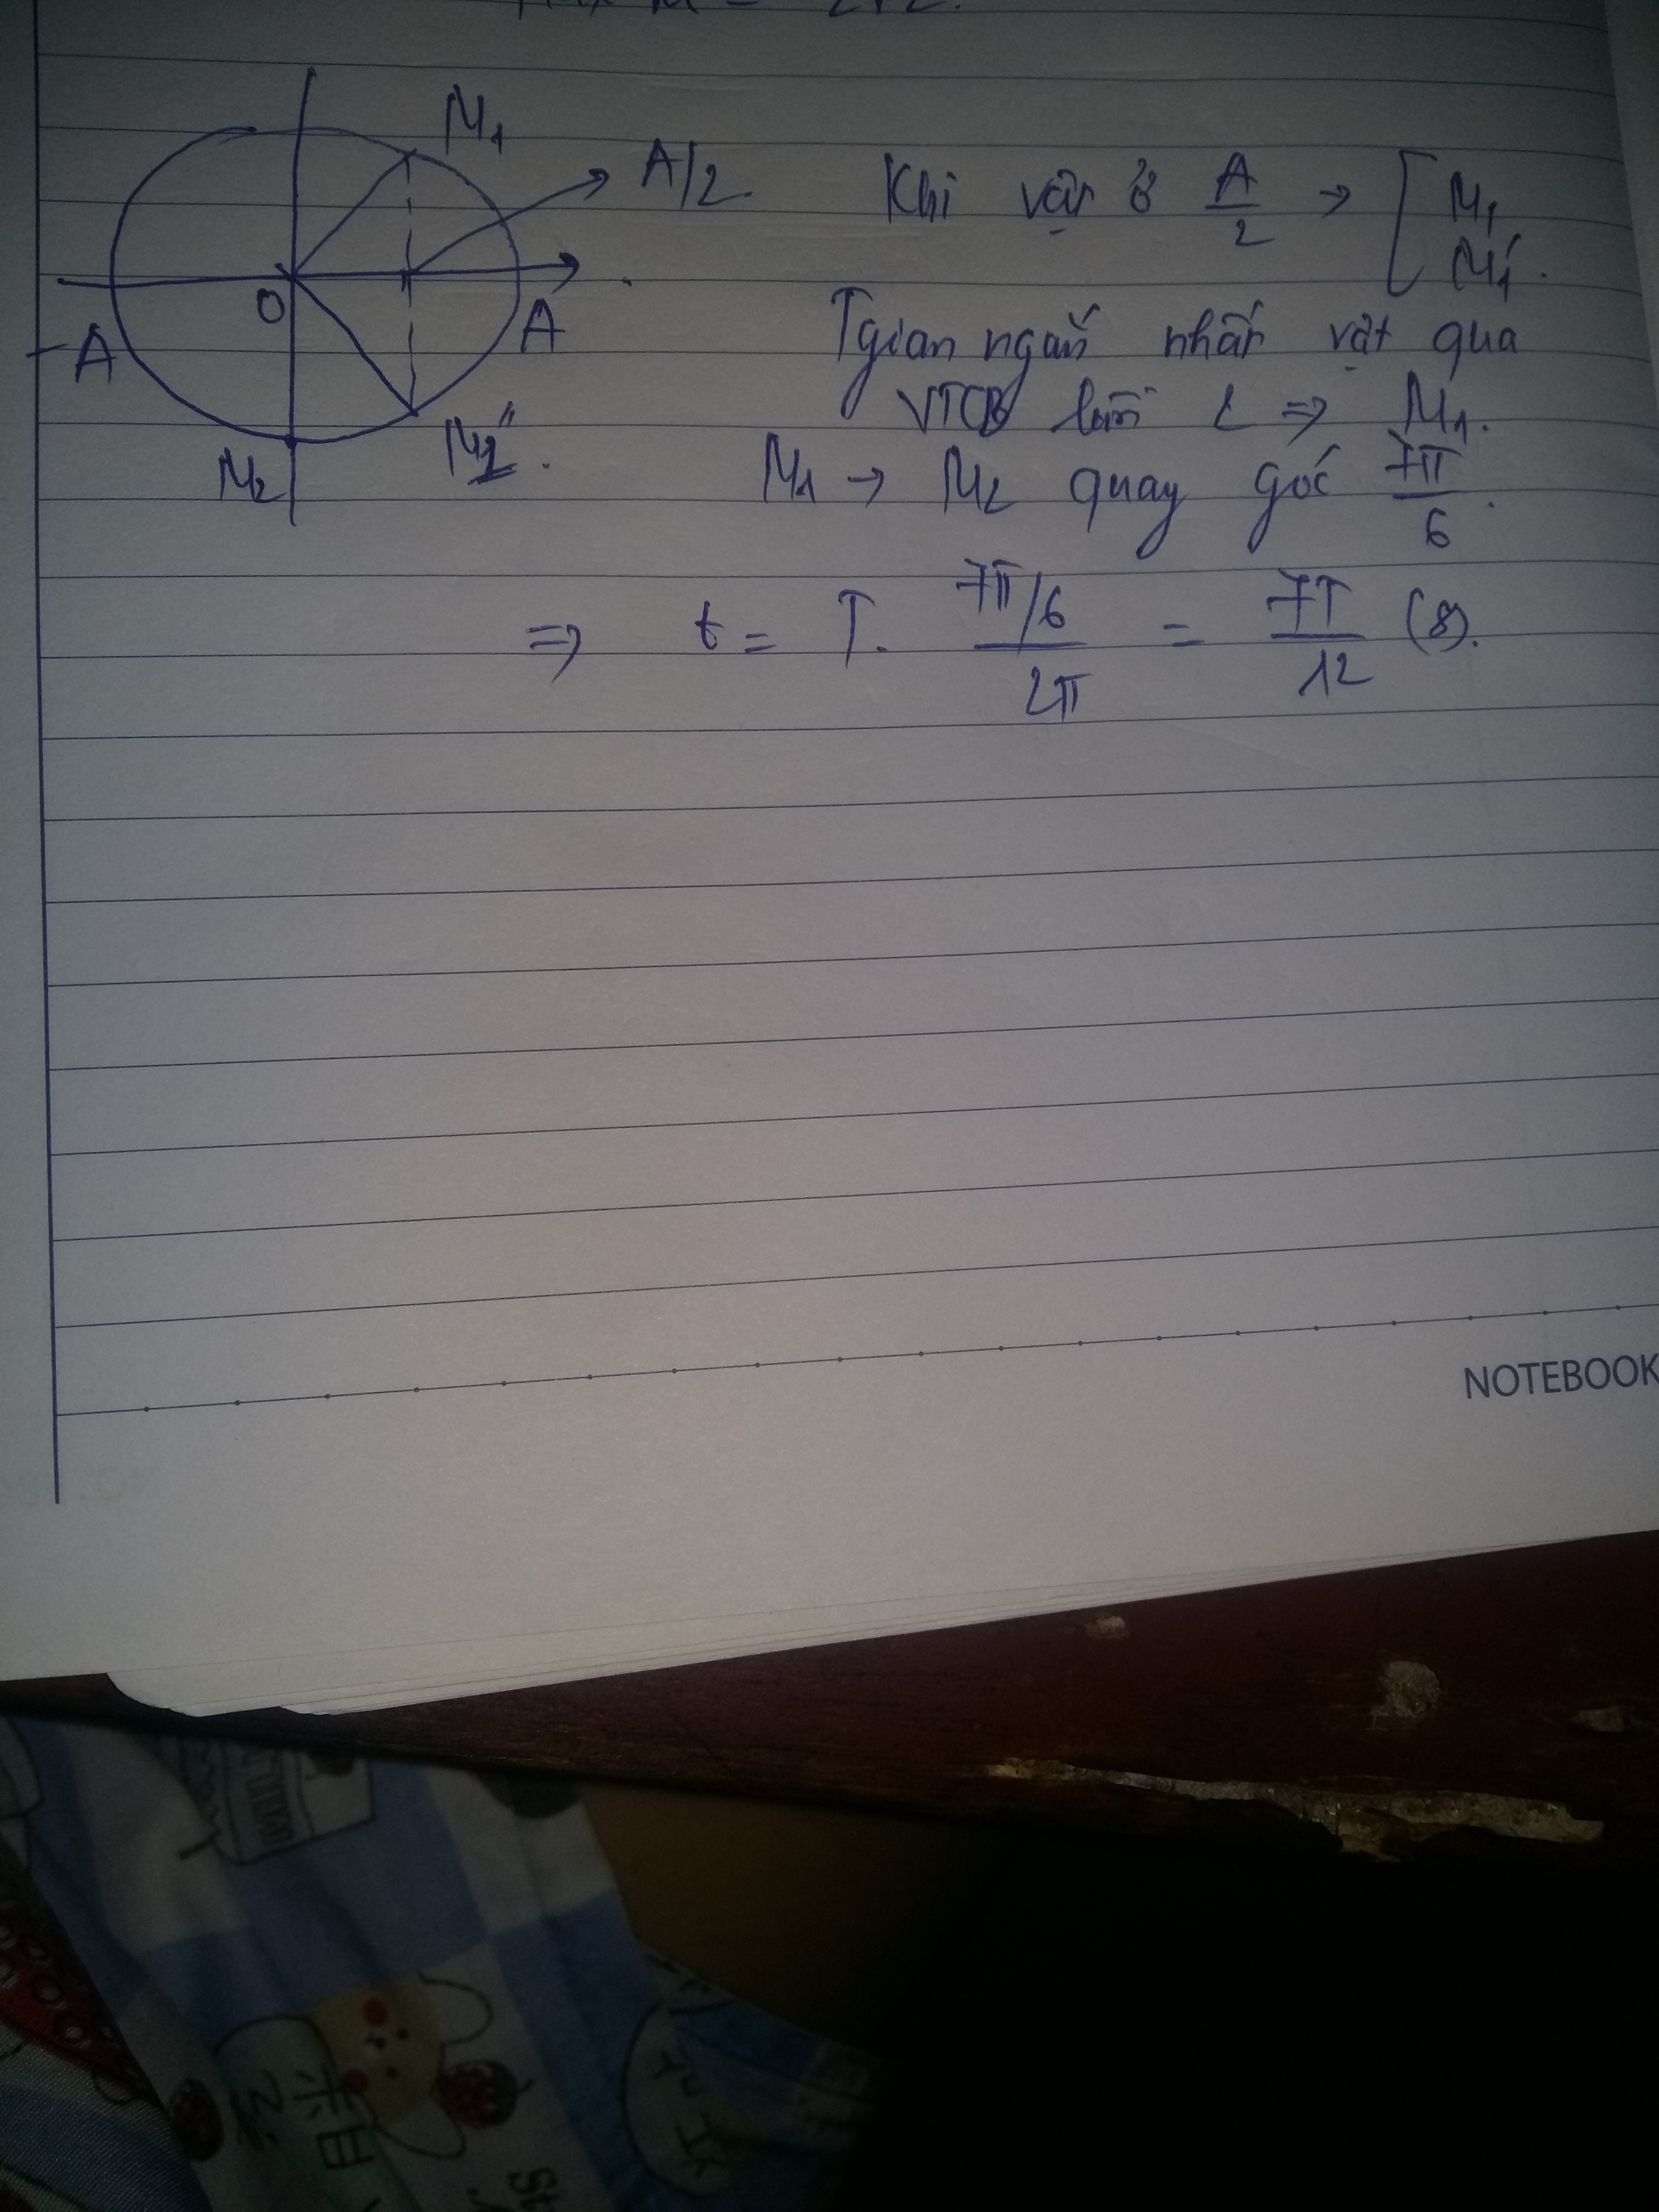 M1
A/2
O
A
-A
M2
M1'
Khi vật ở A/2 → [ M1
M1'.
Tgian ngắn nhất vật qua
VTCB lần 2 => M1.
M1 → M2 quay góc 7π/6.
=> t = T. (7π/6)/(2π) = 7T/12 (s).
NOTEBOOK